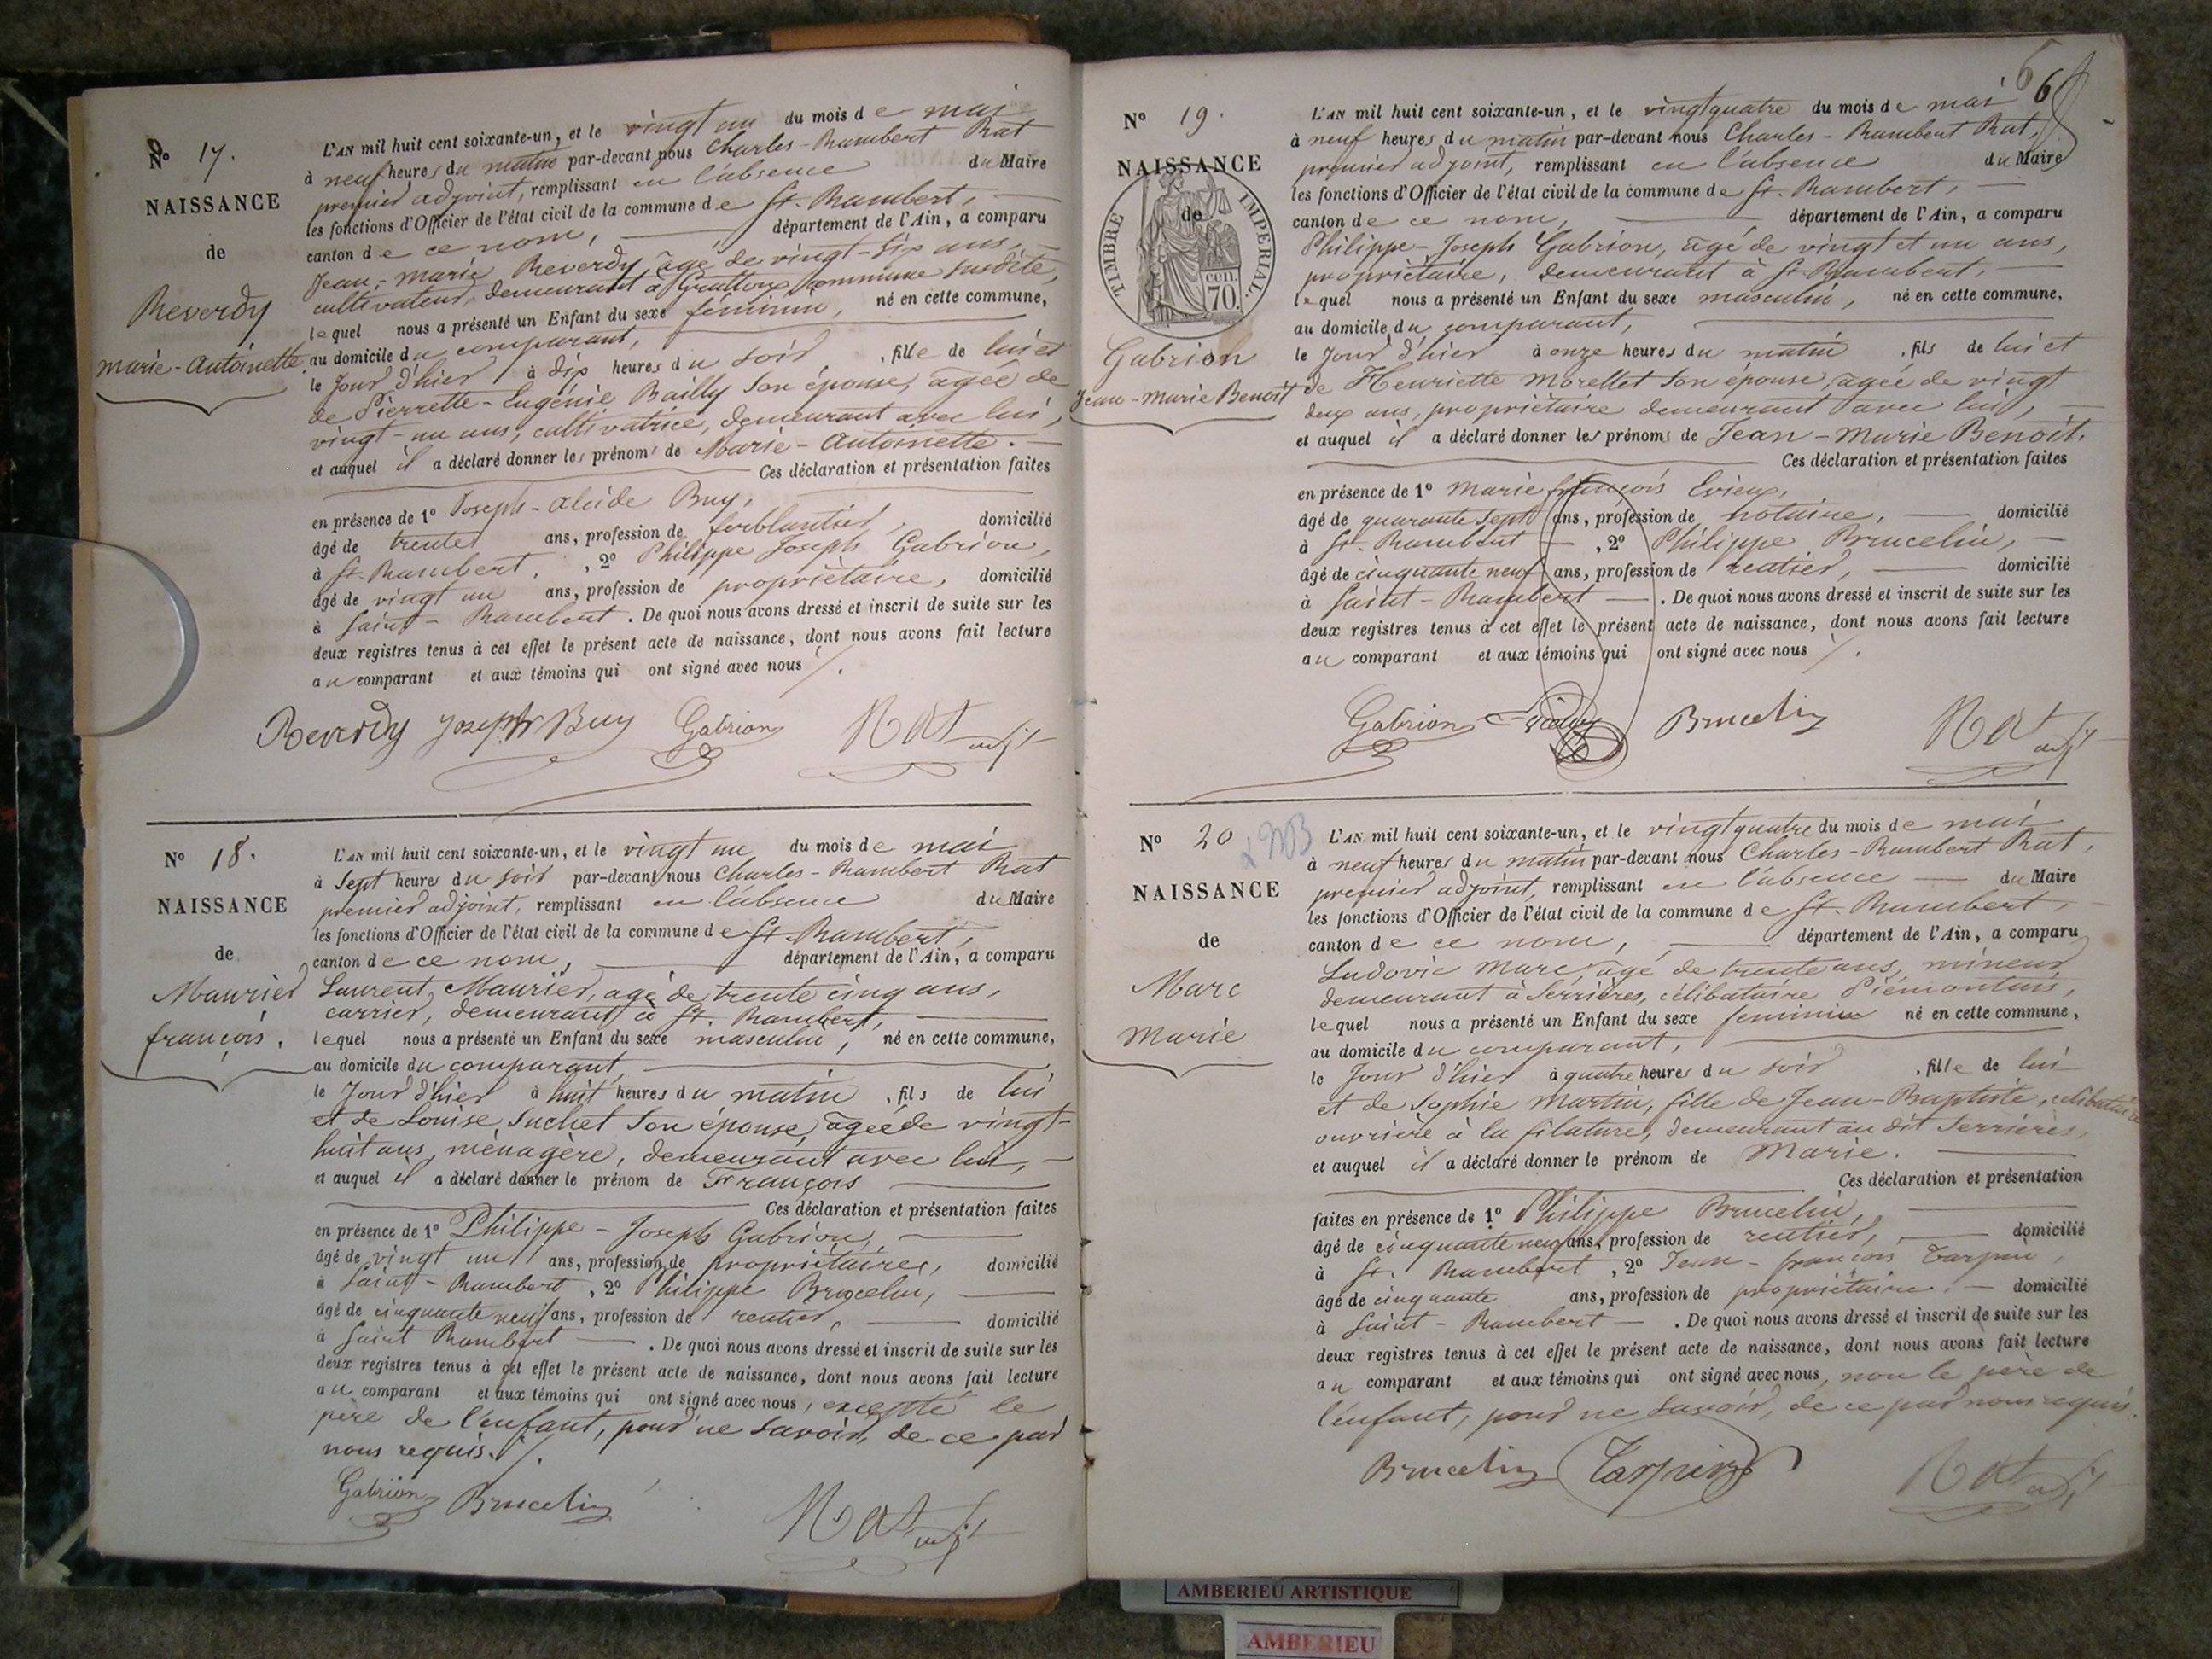 N° 17.
NAISSANCE
de
Reverdy
Marie-Antoinette
L'AN mil huit cent soixante-un, et le vingt un du mois de mai
à neuf heures du matin par-devant nous Charles-Rambert Rat
premier adjoint, remplissant en l'absence du Maire
les fonctions d'Officier de l'état civil de la commune de St. Rambert,
canton de ce nom, département de l'Ain, a comparu
Jean-Marie Reverdy, âgé de vingt-six ans,
cultivateur, demeurant à Grattoux commune susdite,
lequel nous a présenté un Enfant du sexe féminin, né en cette commune,
au domicile du comparant,
le Jour d'hier à dix heures du soir, fille de lui et
de Pierrette-Eugénie Bailly son épouse, agée de
vingt-un ans, cultivatrice, demeurant avec lui,
et auquel il a déclaré donner les prénoms de Marie-Antoinette.
Ces déclaration et présentation faites
en présence de 1° Joseph-Alcide Buy,
âgé de trente ans, profession de ferblantier, domicilié
à St. Rambert, 2° Philippe Joseph Gabrion,
âgé de vingt un ans, profession de propriétaire, domicilié
à Saint-Rambert. De quoi nous avons dressé et inscrit de suite sur les
deux registres tenus à cet effet le présent acte de naissance, dont nous avons fait lecture
au comparant et aux témoins qui ont signé avec nous ./.
Reverdy Joseph Buy Gabrion Rat adjt
N° 18.
NAISSANCE
de
Maurier
françois.
L'AN mil huit cent soixante-un, et le vingt un du mois de mai
à Sept heures du soir par-devant nous Charles-Rambert Rat
premier adjoint, remplissant en l'absence du Maire
les fonctions d'Officier de l'état civil de la commune de St. Rambert,
canton de ce nom, département de l'Ain, a comparu
Laurent Maurier, agé de trente cinq ans,
carrier, demeurant à St. Rambert,
lequel nous a présenté un Enfant du sexe masculin, né en cette commune,
au domicile du comparant,
le Jour d'hier à huit heures du matin, fils de lui
et de Louise Suchet son épouse, agée de vingt-
huit ans, ménagère, demeurant avec lui,
et auquel il a déclaré donner le prénom de François
Ces déclaration et présentation faites
en présence de 1° Philippe-Joseph Gabrion,
âgé de vingt un ans, profession de propriétaire, domicilié
à Saint-Rambert, 2° Philippe Brucelin,
âgé de cinquante neuf ans, profession de rentier, domicilié
à Saint Rambert. De quoi nous avons dressé et inscrit de suite sur les
deux registres tenus à cet effet le présent acte de naissance, dont nous avons fait lecture
au comparant et aux témoins qui ont signé avec nous, excepté le
père de l'enfant, pour ne savoir, de ce par
nous requis. ./.
Gabrion Brucelin Rat adjt
6
6
N° 19.
NAISSANCE
de
TIMBRE IMPERIAL.
70 cen.
Gabrion
Jean-Marie Benoit
L'AN mil huit cent soixante-un, et le vingt quatre du mois de mai
à neuf heures du matin par-devant nous Charles-Rambert Rat,
premier adjoint, remplissant en l'absence du Maire
les fonctions d'Officier de l'état civil de la commune de St. Rambert,
canton de ce nom, département de l'Ain, a comparu
Philippe-Joseph Gabrion, âgé de vingt et un ans,
propriétaire, demeurant à St. Rambert,
lequel nous a présenté un Enfant du sexe masculin, né en cette commune,
au domicile du comparant,
le Jour d'hier à onze heures du matin, fils de lui et
de Henriette Morellet son épouse, agée de vingt
deux ans, propriétaire demeurant avec lui,
et auquel il a déclaré donner les prénoms de Jean-Marie Benoit.
Ces déclaration et présentation faites
en présence de 1° Marie françois Evieux,
âgé de quarante sept ans, profession de notaire, domicilié
à St. Rambert, 2° Philippe Brucelin,
âgé de cinquante neuf ans, profession de rentier, domicilié
à Saint-Rambert. De quoi nous avons dressé et inscrit de suite sur les
deux registres tenus à cet effet le présent acte de naissance, dont nous avons fait lecture
au comparant et aux témoins qui ont signé avec nous ./.
Gabrion Evieux Brucelin Rat adjt
N° 20
NAISSANCE
de
Marc
Marie
L'AN mil huit cent soixante-un, et le vingt quatre du mois de mai
à neuf heures du matin par-devant nous Charles-Rambert Rat,
premier adjoint, remplissant en l'absence du Maire
les fonctions d'Officier de l'état civil de la commune de St. Rambert,
canton de ce nom, département de l'Ain, a comparu
Ludovic Marc, âgé de trente ans, mineur
demeurant à Serrières, célibataire Piémontais,
lequel nous a présenté un Enfant du sexe feminin né en cette commune,
au domicile du comparant,
le Jour d'hier à quatre heures du soir, fille de lui
et de Sophie Martin, fille de Jean-Baptiste, célibataire
ouvrière à la filature, demeurant au dit Serrières,
et auquel il a déclaré donner le prénom de Marie.
Ces déclaration et présentation
faites en présence de 1° Philippe Brucelin,
âgé de cinquante neuf ans, profession de rentier, domicilié
à St. Rambert, 2° Jean-françois Tarpin,
âgé de cinquante ans, profession de propriétaire, domicilié
à Saint-Rambert. De quoi nous avons dressé et inscrit de suite sur les
deux registres tenus à cet effet le présent acte de naissance, dont nous avons fait lecture
au comparant et aux témoins qui ont signé avec nous, non le père de
l'enfant, pour ne savoir, de ce par nous requis.
Brucelin Tarpin Rat adjt
AMBERIEU ARTISTIQUE
AMBERIEU